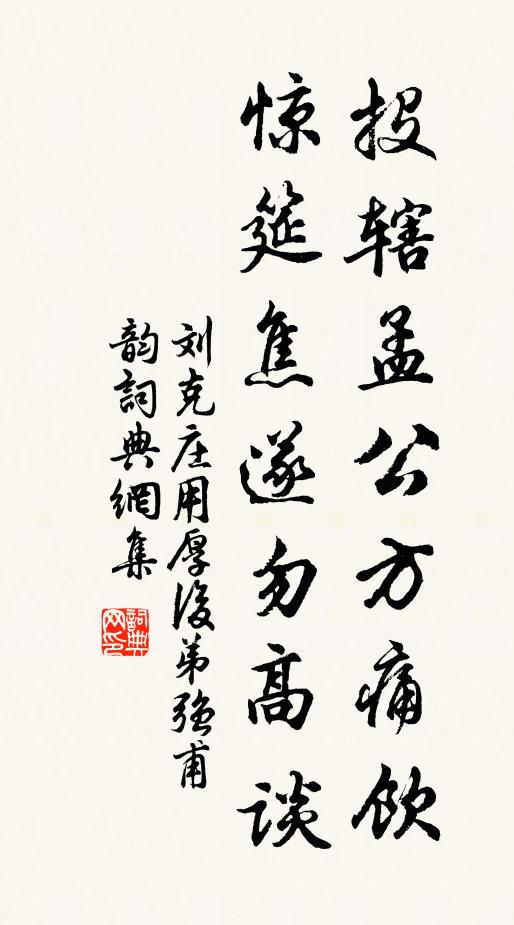 投辖孟公方痛饮
惊筵焦遂勿高谈
刘克庄用厚后弟强甫
韵詞典網集
詞典網印